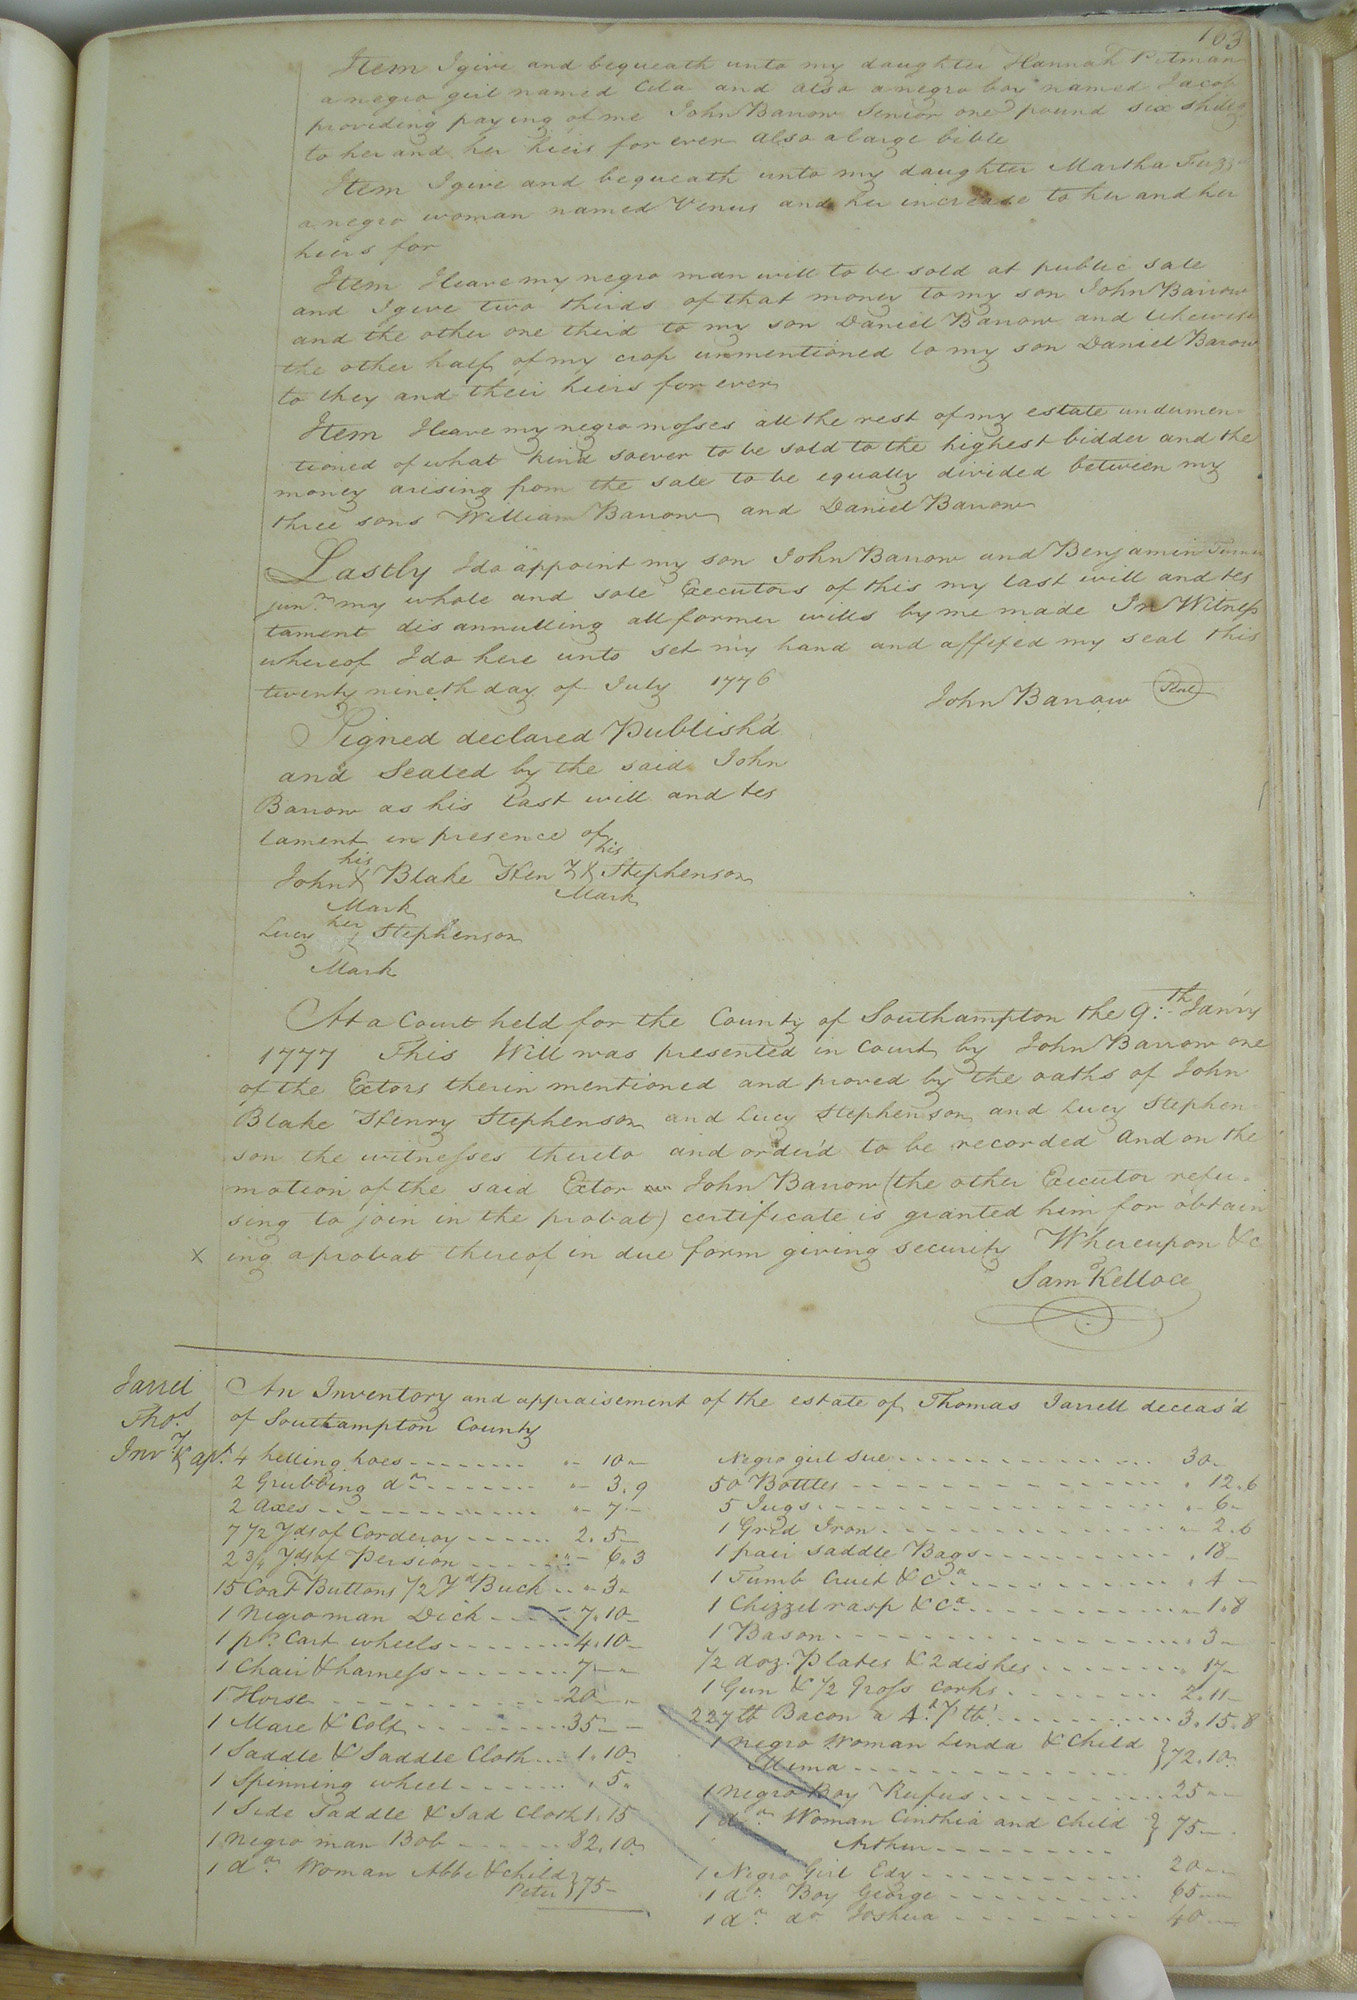 163
Item I give and bequeath unto my daughter Hannah Pitman
a negro girl named Cela and also a negro boy named Jacob
providing paying of me John Barrow Senior one pound six
to her and her heirs for ever also a large bible
Item I give and bequeath unto my daughter Martha
a negro woman named Venus and her increase to her and her
heirs for
Item I leave my negro man will to be sold at public sale
and I give two thirds of that money to my son John Barrow
and the other one third to my son Daniel Barrow and likewise
the other half of my crop unmentioned to my son Daniel Barow
to they and their heirs for ever
Item I leave my negro mosses all the rest of my estate undumen-
tioned of what kind soever to be sold to the highest bidder and the
money arising from the sale to be equally divided between my
three sons William Barrow and Daniel Barrow
Lastly I do appoint my son John Barrow and Benjamin Turner
junr my whole and sole Executors of this my last will and tes
tament disannulling all former wills by me made In Witness
whereof I do here unto set my hand and affixed my seal this
twenty nineth day of July 1776
John Barrow Seal
Signed declared Publish'd
and Sealed by the said John
Barrow as his last will and tes
tament in presence of
his his
John X Blake Hen Y X Stephenson
Mark Mark
her
Lucy X Stephenson
Mark
At a Court held for the County of Southampton the 9:th Janry
1777 This Will was presented in Court by John Barrow one
of the Extors therin mentioned and proved by the oaths of John
Blake Henry Stephenson and Lucy Stephenson and Lucy Stephen
son the witnesses thereto and order'd to be recorded And on the
motion of the said Extor John Barrow (the other Executor refu-
sing to join in the probat) certificate is granted him for obtain
x ing a probat thereof in due form giving security Whereupon &c
Saml Kelloce
Jarrel
Thos
Invy & apt
An Inventory and appraisement of the estate of Thomas Jarrell deceas'd
of Southampton County
4 helling hoes " 10 -
2 Grubbing do " 3.9
2 Axes " 7 -
7 1/2 Yds of Corderoy 2.5 -
2 3/4 Yds of Persion " 6.3
15 Coat Buttons 1/2 Yd Buck " 3 "
1 Negro man Dick 7.10 -
1 pr. Cart wheels 4.10 -
1 Chair & harness 7 - "
1 Horse 20 - "
1 Mare & Colt 35 - -
1 Saddle & Saddle Cloth 1.10 "
1 Spinning wheel . 5 "
1 Side Saddle & Sad Cloth 1.15
1 Negro man Bob 82.10 "
1 do Woman Abbe & child
Peter } 75 -
Negro girl Sue 30 -
50 Bottles " 12.6
5 Jugs " 6 -
1 Grid Iron " 2.6
1 pair saddle Bags " 18 -
1 Tumb Cruit & Ca " 4 -
1 Chizzel rasp & Ca " 1.8
1 Bason " 3 -
1/2 doz. Plates & 2 dishes " 17 -
1 Gun & 1/2 Gross corks 2.11 -
227 lb Bacon a 4d. p lb 3.15.8
1 negro Woman Linda & Child
Mima } 72.10 "
1 negro Boy Rufus 25 - -
1 do Woman Cinthia and Child
Arthur } 75 -
1 Negro Girl Edy 20 - -
1 do. Boy George 65 - -
1 do. do Joshua 40 - -